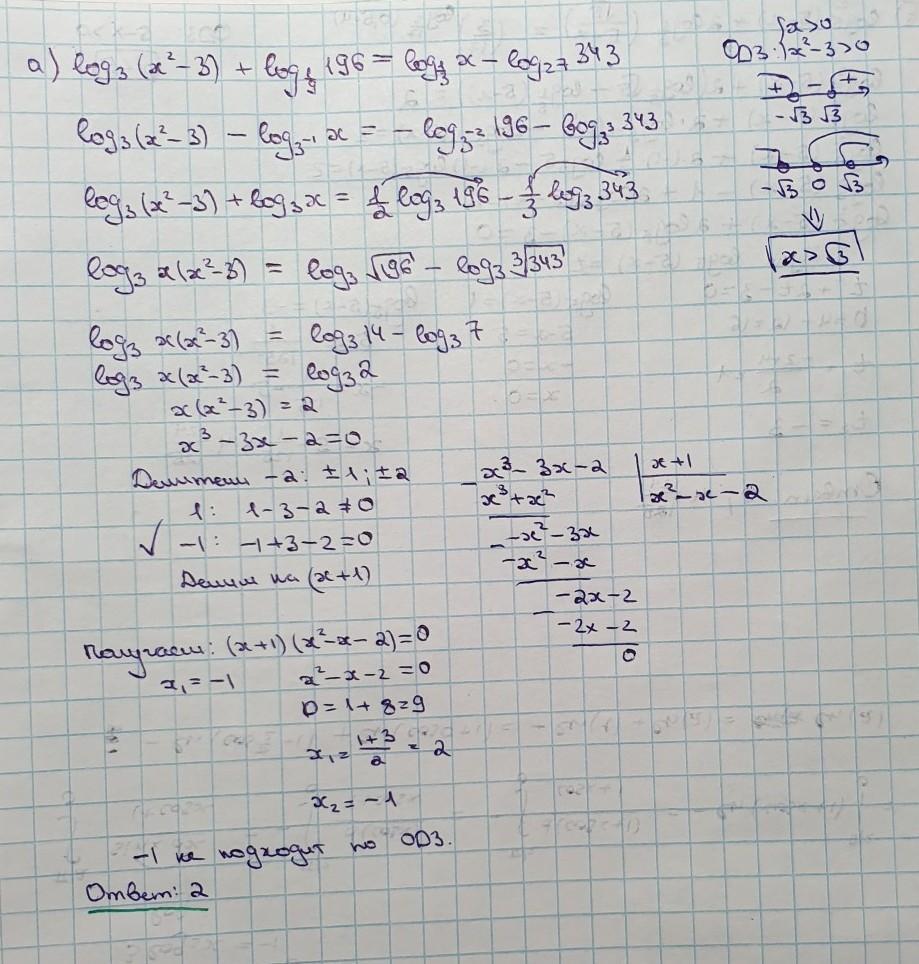 а) log₃(x²−3) + log_{1/9} 196 = log_{1/3} x − log₂₇ 343
ОДЗ: { x>0
x²−3>0
+ − +
−√3 √3
−√3 0 √3
⇓
x>√3
log₃(x²−3) − log_{3⁻¹} x = − log_{3⁻²} 196 − log_{3³} 343
log₃(x²−3) + log₃x = 1/2 log₃ 196 − 1/3 log₃ 343
log₃ x(x²−3) = log₃ √196 − log₃ ∛343
log₃ x(x²−3) = log₃14 − log₃7
log₃ x(x²−3) = log₃2
x(x²−3) = 2
x³ − 3x − 2 = 0
Делители −2: ±1; ±2
1: 1−3−2 ≠ 0
✓ −1: −1+3−2=0
Делим на (x+1)
x³− 3x−2 | x+1
− x³+x² | x²−x−2
−x²−3x
− −x²−x
−2x−2
− −2x−2
0
Получаем: (x+1)(x²−x−2)=0
x₁=−1 x²−x−2=0
D=1+8=9
x₁= (1+3)/2 = 2
x₂=−1
−1 не подходит по ОДЗ.
Ответ: 2